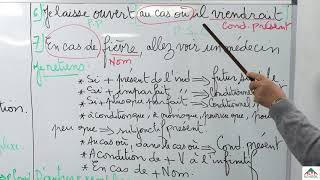 6) Je laisse ouvert au cas où il viendrait
Cond. présent
7) En cas de fièvre, allez voir un médecin
Nom
Je retiens:
* Si + présent de l'ind → futur simple
* Si + imparfait → conditionnel
* Si + plus que parfait → Conditionnel
* à condition que, pourvu que
peu que → subjonctif présent
* Au cas où, dans le cas où → Cond présent
* A condition de + V à l'infinitif
* En cas de + Nom.